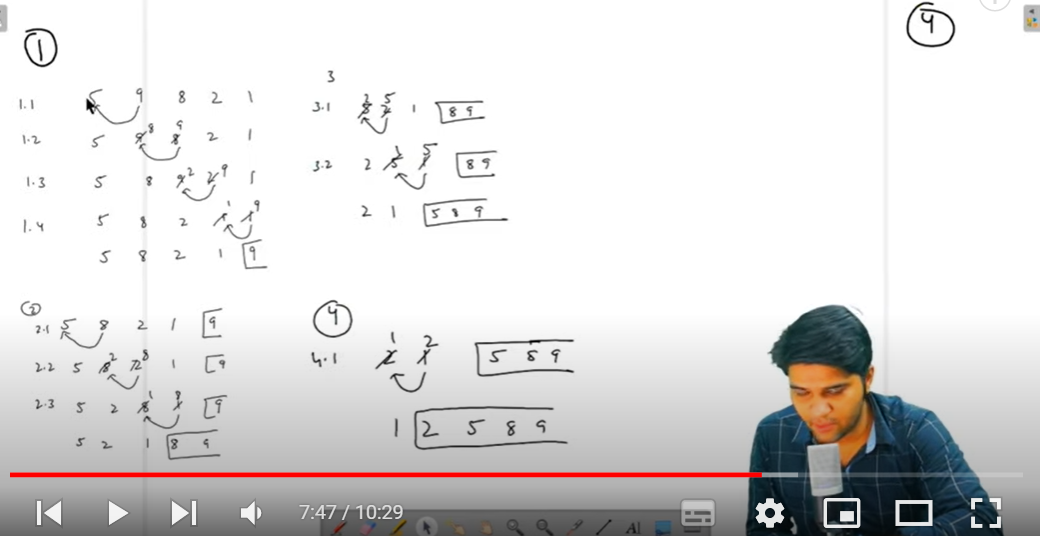 1
1.1 5 9 8 2 1
1.2 5 9 8 8 9 2 1
1.3 5 8 9 2 2 9 1
1.4 5 8 2 1 9
5 8 2 1 9
2
2.1 5 8 2 1 9
2.2 5 8 2 2 8 1 9
2.3 5 2 8 1 1 8 9
5 2 1 8 9
3
3.1 2 5 1 8 9
3.2 2 5 1 1 5 8 9
2 1 5 8 9
4
4.1 2 1 1 2 5 8 9
1 2 5 8 9
4
7:47 / 10:29
A